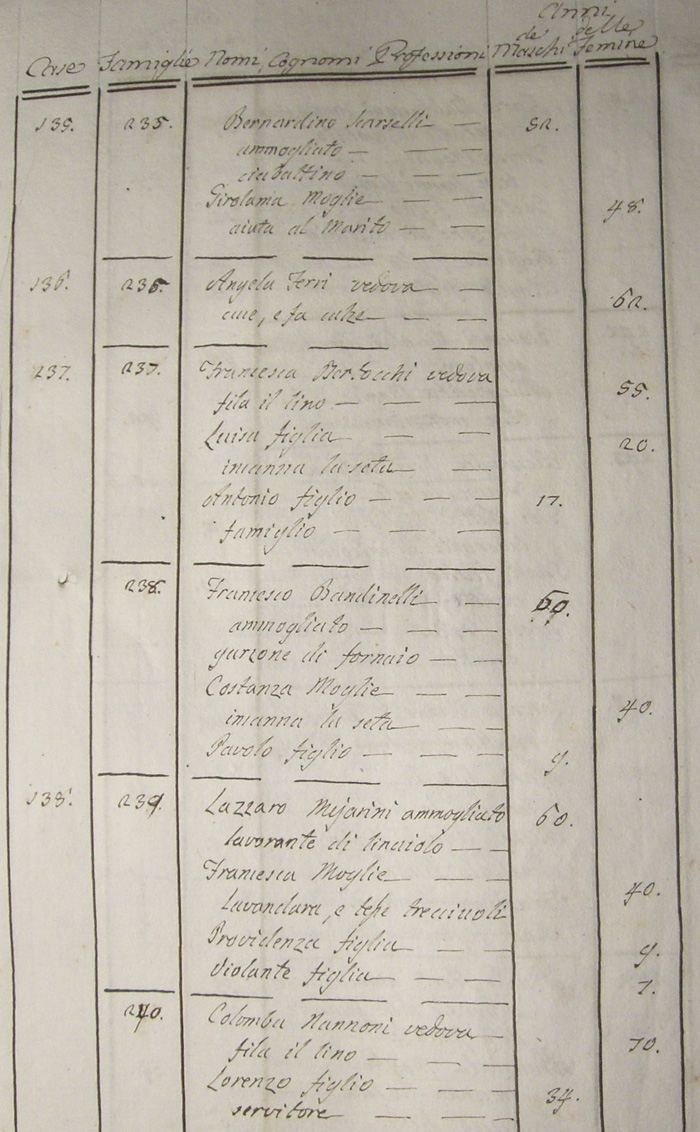 Anni
Case Famiglie Nomi, Cognomi Professioni de Maschi delle Femine
135. 235. Bernardino Scarselli 52.
ammogliato
ciabattino
Girolama Moglie 48.
aiuta al Marito
136. 236. Angela Ferri vedova 62.
cuce, e fa calze
137. 237. Francesca Bertocchi vedova 55.
fila il lino
Luisa figlia 20.
incanna la seta
Antonio figlio 17.
famiglio
238. Francesco Bandinelli 60.
ammogliato
garzone di fornaio
Costanza Moglie 40.
incanna la seta
Pavolo figlio 9.
138. 239. Lazzaro Mejarini ammogliato 60.
lavorante di linaiolo
Francesca Moglie 40.
Lavandara, e tesse trecciuoli
Providenza figlia 9.
Violante figlia 7.
240. Colomba Nannoni vedova 70.
fila il lino
Lorenzo figlio 34.
servitore